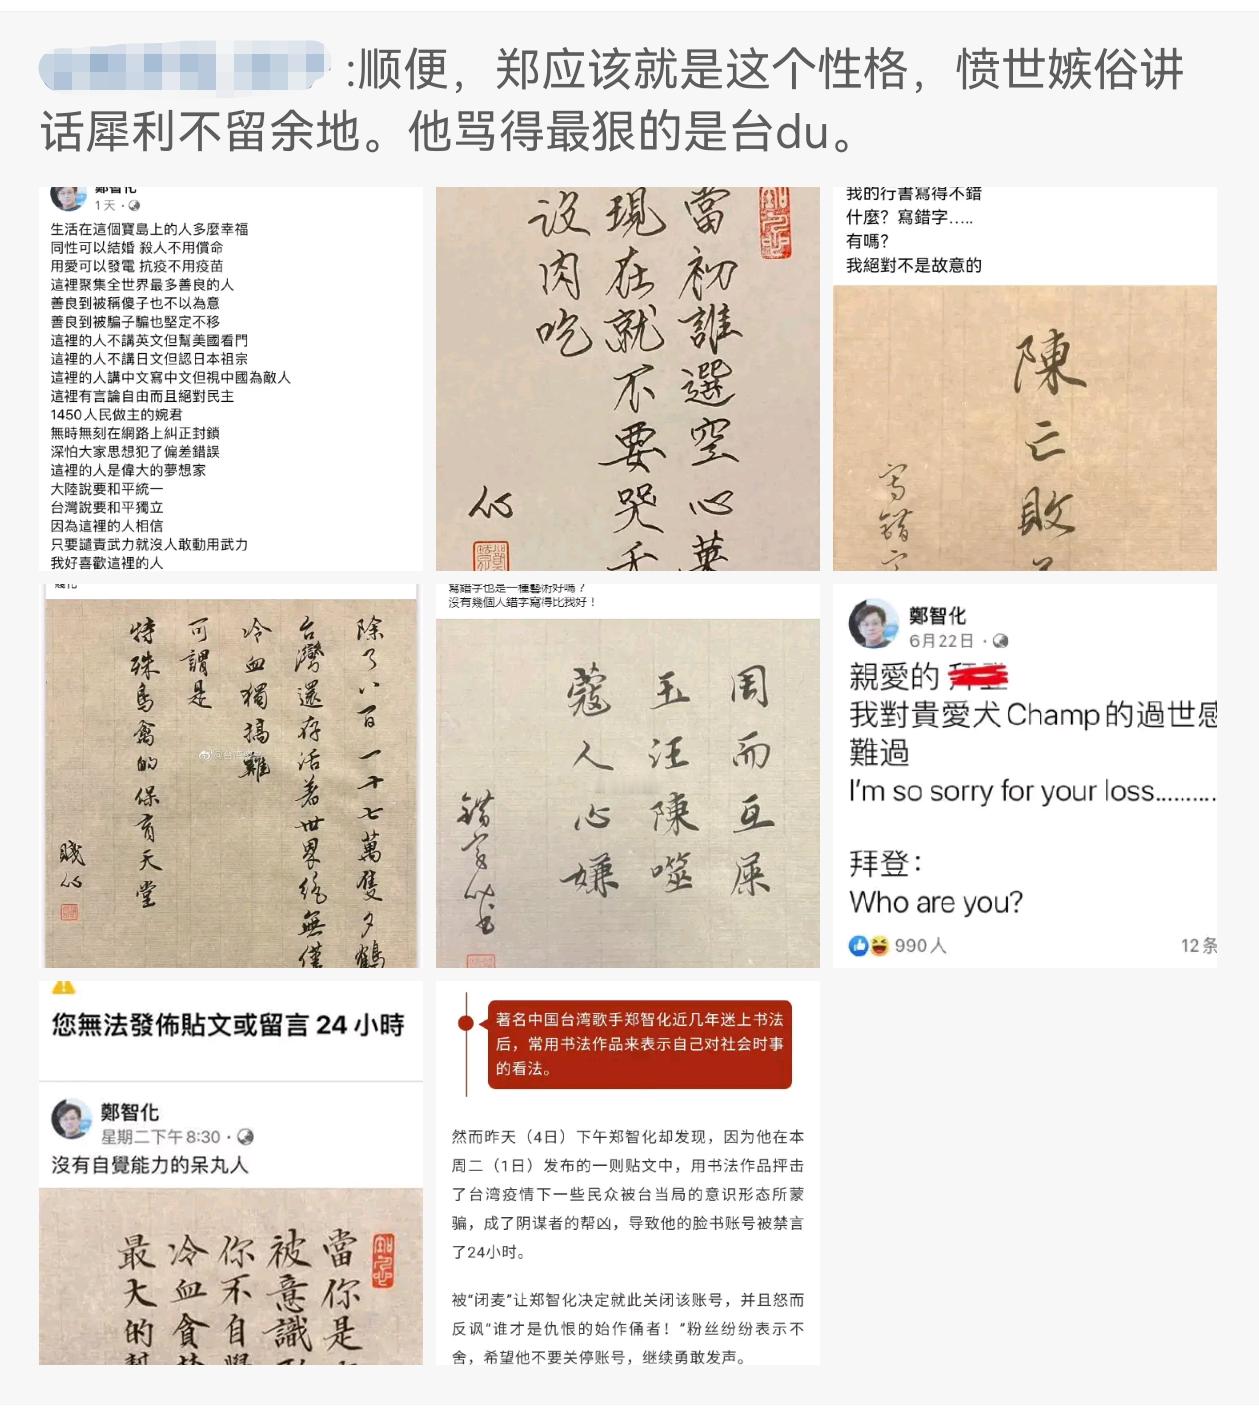 :顺便，郑应该就是这个性格，愤世嫉俗讲
话犀利不留余地。他骂得最狠的是台du。
鄭智化
1天
生活在這個寶島上的人多麼幸福
同性可以結婚 殺人不用償命
用愛可以發電 抗疫不用疫苗
這裡聚集全世界最多善良的人
善良到被稱傻子也不以為意
善良到被騙子騙也堅定不移
這裡的人不講英文但幫美國看門
這裡的人不講日文但認日本祖宗
這裡的人講中文寫中文但視中國為敵人
這裡有言論自由而且絕對民主
1450人民做主的婉君
無時無刻在網路上糾正封鎖
深怕大家思想犯了偏差錯誤
這裡的人是偉大的夢想家
大陸說要和平統一
台灣說要和平獨立
因為這裡的人相信
只要譴責武力就沒人敢動用武力
我好喜歡這裡的人
當初誰選空心菜
現在就不要哭
沒肉吃
我的行書寫得不錯
什麼？寫錯字.....
有嗎？
我絕對不是故意的
陳亡敗
寫錯字
除了八百一十七萬隻夕鶴
台灣還存活著世界絕無僅
冷血獨搞雞
可謂是
特殊鳥禽的保育天堂
寫錯字也是一種藝術好嗎？
沒有幾個人錯字寫得比我好！
周而亙屎
玉汪陳噬
蔻人心嫌
鄭智化
6月22日
親愛的
我對貴愛犬Champ的過世感
難過
I'm so sorry for your loss..........
拜登：
Who are you?
990人
12条
您無法發佈貼文或留言 24 小時
鄭智化
星期二下午8:30
沒有自覺能力的呆丸人
當你是
被意識
你不自覺
冷血貪
最大的幫
著名中国台湾歌手郑智化近几年迷上书法
后，常用书法作品来表示自己对社会时事
的看法。
然而昨天（4日）下午郑智化却发现，因为他在本
周二（1日）发布的一则贴文中，用书法作品抨击
了台湾疫情下一些民众被台当局的意识形态所蒙
骗，成了阴谋者的帮凶，导致他的脸书账号被禁言
了24小时。
被“闭麦”让郑智化决定就此关闭该账号，并且怒而
反讽“谁才是仇恨的始作俑者！”粉丝纷纷表示不
舍，希望他不要关停账号，继续勇敢发声。